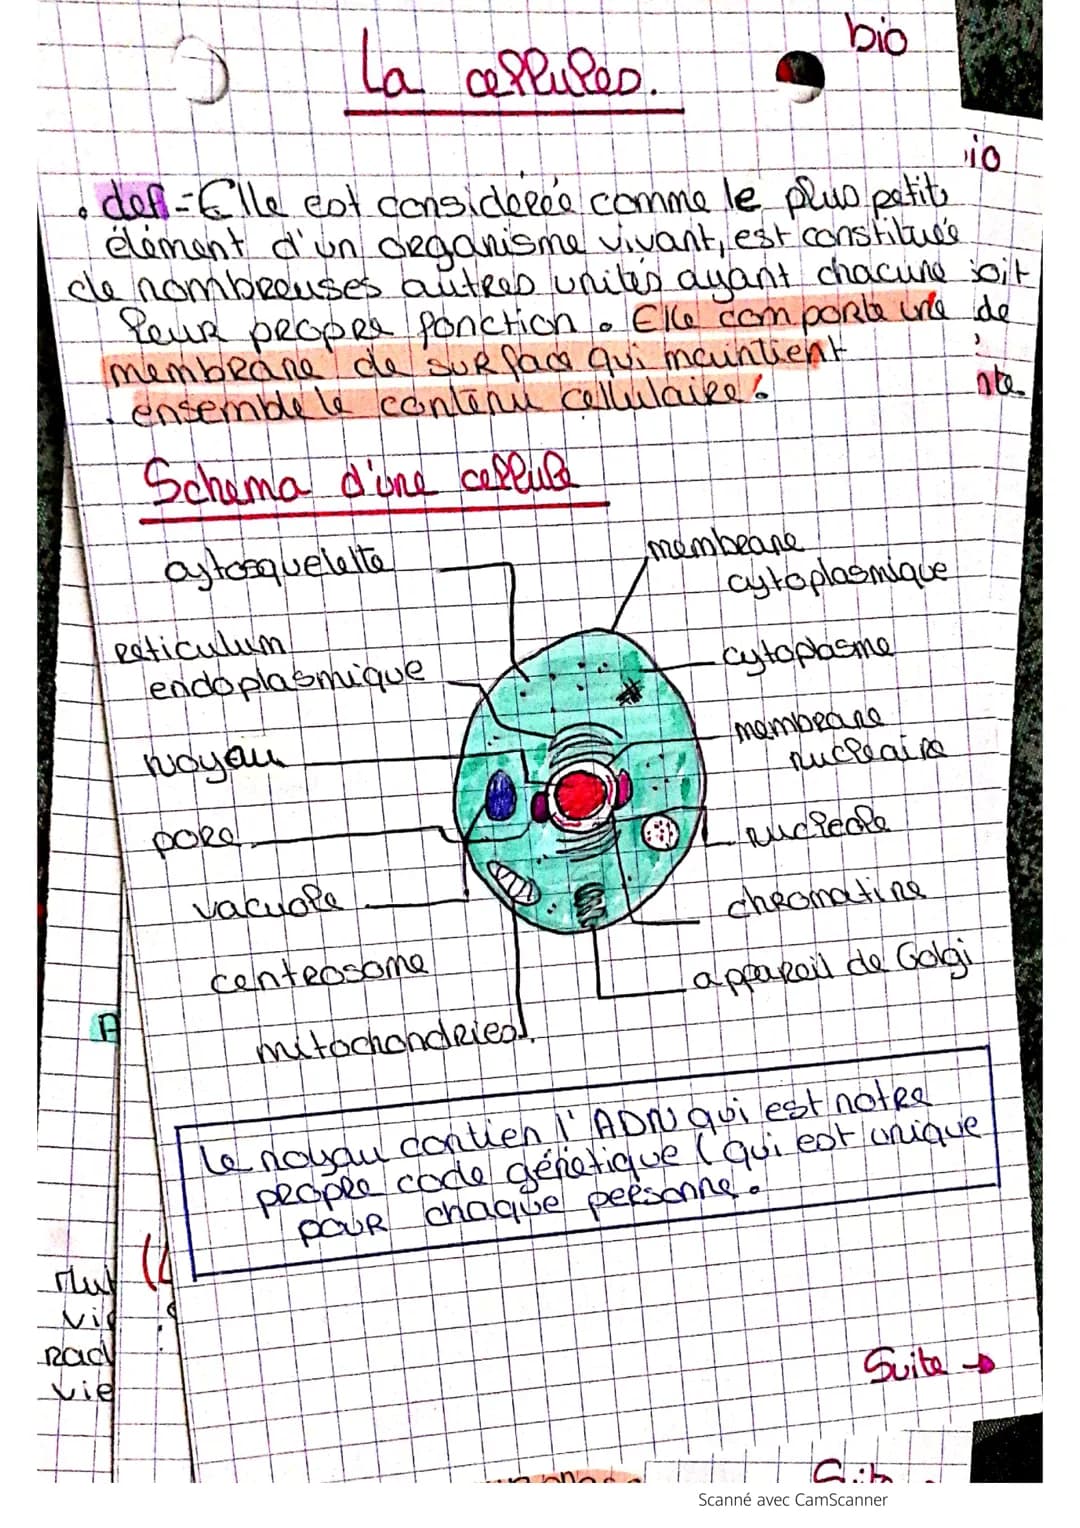 bio
La cellules.
io
. def - Elle est considérée comme le plus petit
élément d'un organisme vivant, est constituée
de nombreuses autres unités ayant chacune
soit
leur propre fonction. Elle comporte une
de
membrane de surface qui maintient
ensemble le contenu cellulaire.
nte
Schema d'une cellule
cytosquelette
membrane
cytoplasmique
reticulum
endoplasmique
cytoplasme
noyau
membrane
nucleaire
pore
nucleole
vacuole
chromatine
centrosome
appareil de Golgi
mitochondries
A
Le noyau contien l'ADN qui est notre
propre code génétique (qui est unique
pour chaque personne.
vie
Suite →
Scanné avec CamScanner